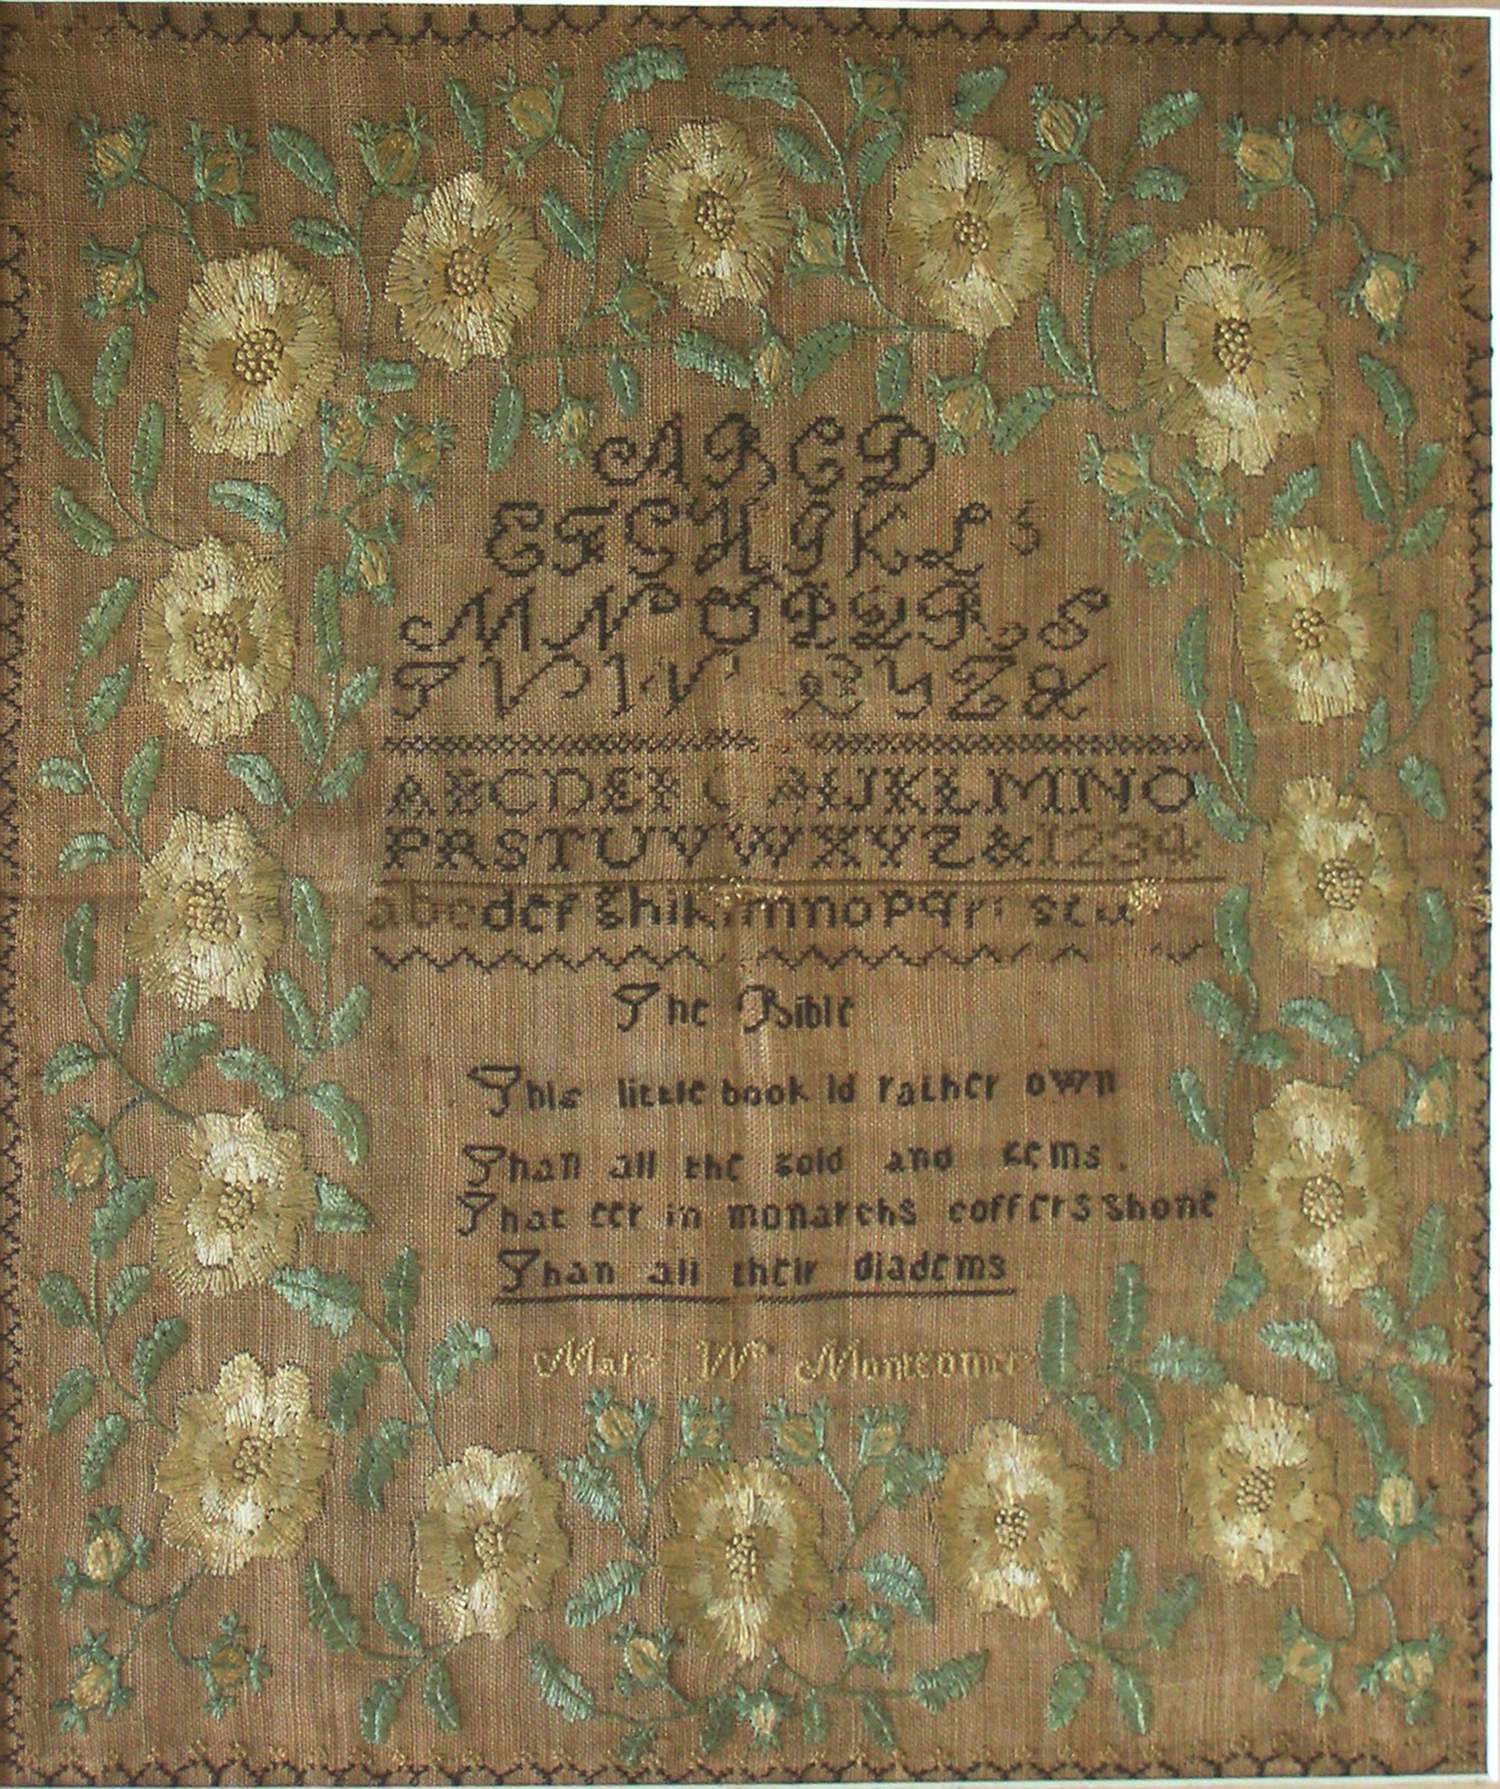 A B C D
E F G H I K L
M N O P Q R S
T V W X Y Z &
ABCDEF G HIJKLMNO
PRSTUVWXYZ&1234
abcdefghiklmnopqrstu
The Bible
This little book id rather own
Than all the gold and gems.
That eer in monarchs coffers shone
Than all their diadems
Mary Wm